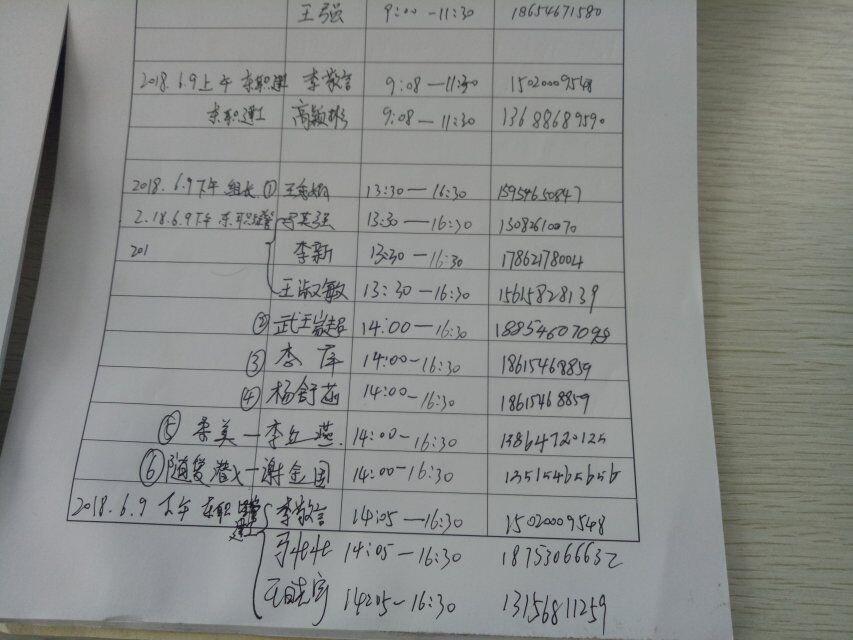 王强 9:00-11:30 18654671580
2018.6.9上午 东职建 李敬言 9:08-11:30 15020009548
东职建工 高颖彬 9:08-11:30 13688689590
2018.6.9下午 组长① 13:30-16:30 15954650847
2.18.6.9下午 东职 13:30-16:30 13082610070
201 李新 13:30-16:30 17862178004
王淑敏 13:30-16:30 15615828139
② 武王岩超 14:00-16:30 18854607098
③ 李 14:00-16:30 18615468859
④ 杨舒涵 14:00-16:30 18615468859
⑤ 李丘燕. 14:00-16:30 13864720125
⑥ 谢金国 14:00-16:30 13515465656
2018.6.9 下午 东职 建工 李敬言 14:05-16:30 15020009548
14:05-16:30 18753066632
王晓宇 14:05-16:30 13156811259